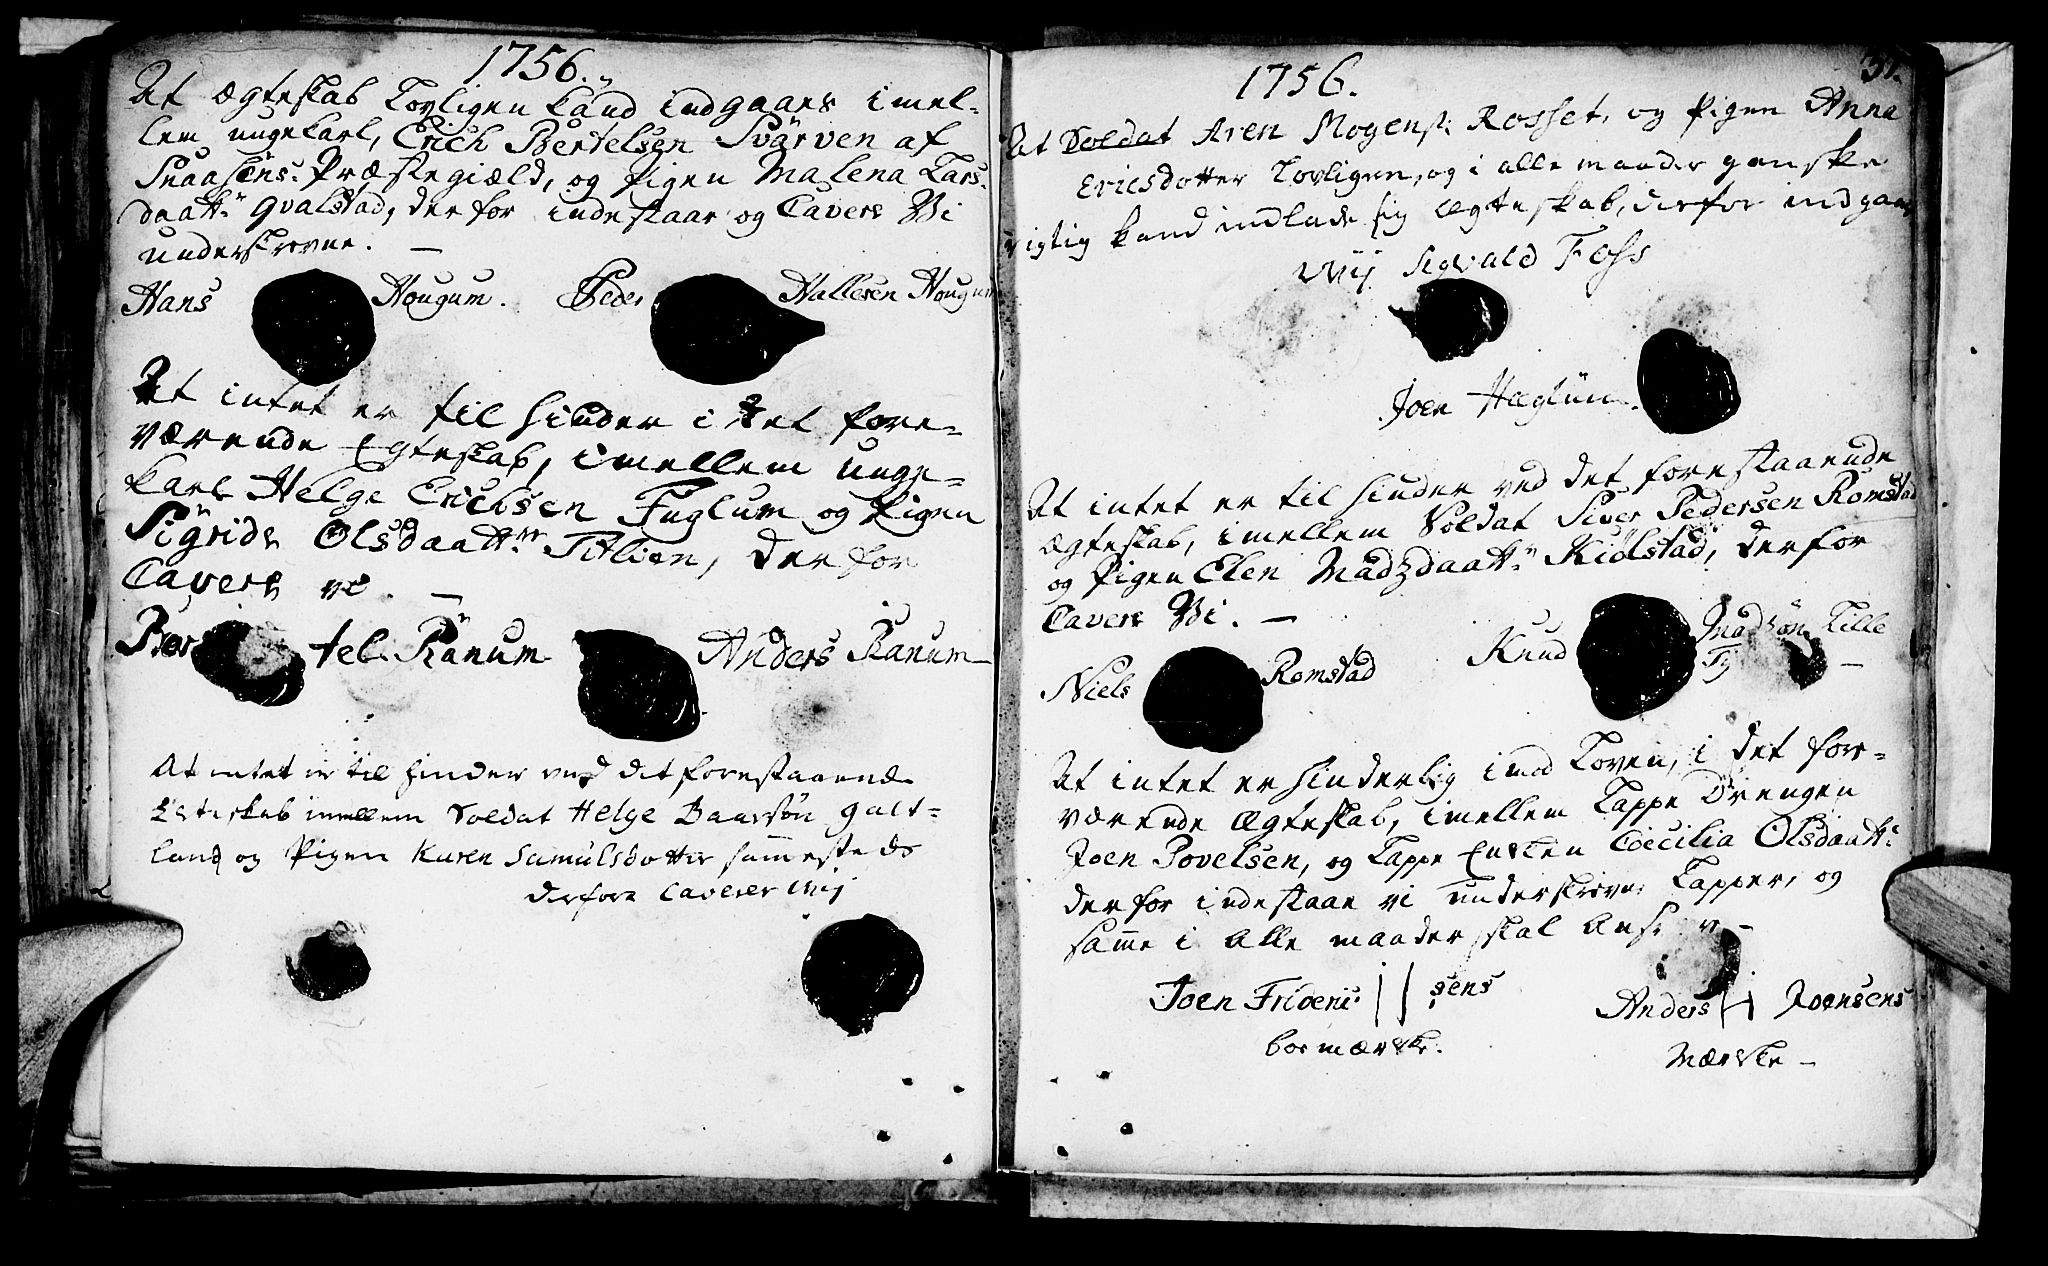 1756.
At ægteskab Lovligen kand indgaaes imel-
lem ungekarl, Erich Bertelsen Svärven af
Snaasens Præstegiæld, og Pigen Malena Lars-
daattr. Qvalstad, derfor indestaar og Cavere Vi
underskrevne. —
Hans Hougum. Peder Hallesen Hougum
At intet er til hinder i det fore-
værende Egteskab, imellem unge-
karl Helge Erichsen Fuglum og Pigen
Sigride Olsdaattr Titlien, derfor
Cavere vi. —
Ber tel Ranum Anders Ranum
At intet er til hinder ved det forestaaende
Ecteskab imellem Soldat Helge Baarsön galt-
land og Pigen Karen Samulsdotter sammesteds
derfore Caverer wij
1756.
37.
At Soldat Aren Mogens: Rosset, og Pigen Anna
Ericsdotter Lovligen, og i alle maader ganske
rigtig kand indlade sig Ægteskab, derfor indgaar
wij Sigvald Foss
Joen Hæglün
At intet er til hinder ved det forestaaende
ægteskab, imellem Soldat Siver Pedersen Romstad
og Pigen Elen Madzdaattr. Kiölstad, derfor
Cavere Vi. —
Niels Romstad Knud Madsön Lille
At intet er hinderlig imod Loven, i det for-
værende Ægteskab, imellem Lappe Drengen
Joen Povelsen, og Lappe Enken Coecilia Olsdaattr:
derfor indestaae vi underskrevne Lapper, og
samme i Alle maader skal
Joen Frideric sens Anders Joensens
boe mærke. Mærke —